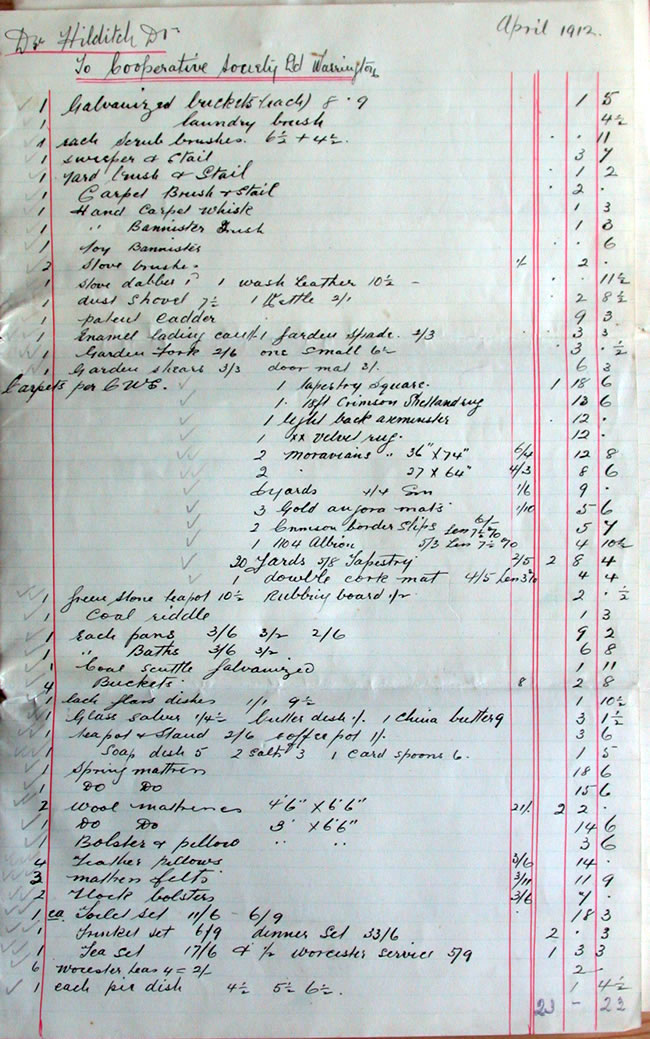 Dr Hilditch Dr April 1912.
To Cooperative Society Ld Warrington
1 Galvanized buckets (each) 8 . 9 1 5
1 laundry brush 4½
1 each Scrub brushes. 6½ + 4½ . . 11
1 sweeper & Stail 3 7
1 Yard brush & Stail . 1 2
1 Carpet Brush & Stail . 2 .
1 Hand Carpet Whisk 1 3
1 " Bannister Brush 1 3
1 Toy Bannister . . 6
2 Stove brushes 1/- . 2 .
1 Stove dabber 1 wash leather 10½ - . . 11½
1 dust Shovel 7½ 1 Kettle 2/1 . 2 8½
1 patent Ladder 9 3
1 Enamel lading can 1/1 Garden Spade. 2/3 . 3 3
1 Garden Fork 2/6 one small 6½ . 3 . ½
1 Garden shears 3/3 door mat 3/. 6 3
Carpets per C.W.S.
1 Tapestry Square. 1 18 6
1. 18ft Crimson Shetland rug 13 6
1 light back axminster . 12 .
1 xx Velvet rug. 12 .
2 Moravians .. 36" X 74" 6/4 12 8
2 . 27 X 64" 4/3 8 6
6 yards 4/4 1/6 9 .
3 Gold angora mats 1/10 5 6
2 Crimson border Slips 6/- Less 7½ % 5 7
1 1104 Albion 5/3 Less 7½ % 4 10½
20 Yards 5/8 Tapestry 2/5 2 8 4
1 double cork mat 4/5 Less 3% 4 4
1 Green Stone teapot 10½ Rubbing board 1/2 2 . ½
1 Coal riddle 1 3
1 each pans 3/6 3/2 2/6 9 2
1 " Baths 3/6 3/2 6 8
1 Coal Scuttle galvanized 1 11
4 Buckets 8 2 8
1 each glass dishes 1/1 9½ 1 10½
1 Glass Salver 1/4½ butter dish 1/. 1 China butter 9 3 1½
1 teapot & Stand 2/6 coffee pot 1/. 3 6
1 Soap dish 5 2 Salts 3 1 Card Spoons 6. 1 5
1 Spring mattress 18 6
1 Do Do 15 6
2 Wool mattresses 4'6" X 6'6" 21/. 2 2 .
1 Do Do 3' X 6'6" 14 6
1 Bolster & pillow " " 3 6
4 Feather pillows 3/6 14 .
3 mattress felts 3/11 11 9
2 Flock bolsters 3/6 7 .
1 ea Toilet Set 11/6 - 6/9 . 18 3
1 Trinket set 6/9 dinner Set 33/6 2 . 3
1 Tea Set 17/6 & ½ Worcester Service 5/9 1 3 3
6 Worcester teas 4 = 2/- 2 -
1 each pie dish 4½ 5½ 6½ . 1 4½
23 - 23